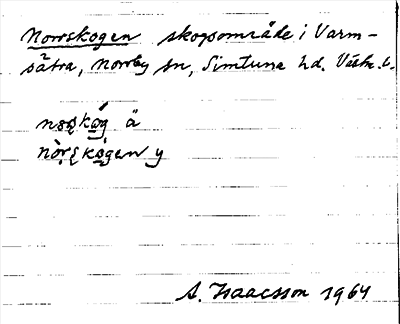 Norrskogen skogsområde i Varm-
sätra, Norrby sn, Simtuna hd. Västm. l.
ä
y
A. Isaacsson 1964